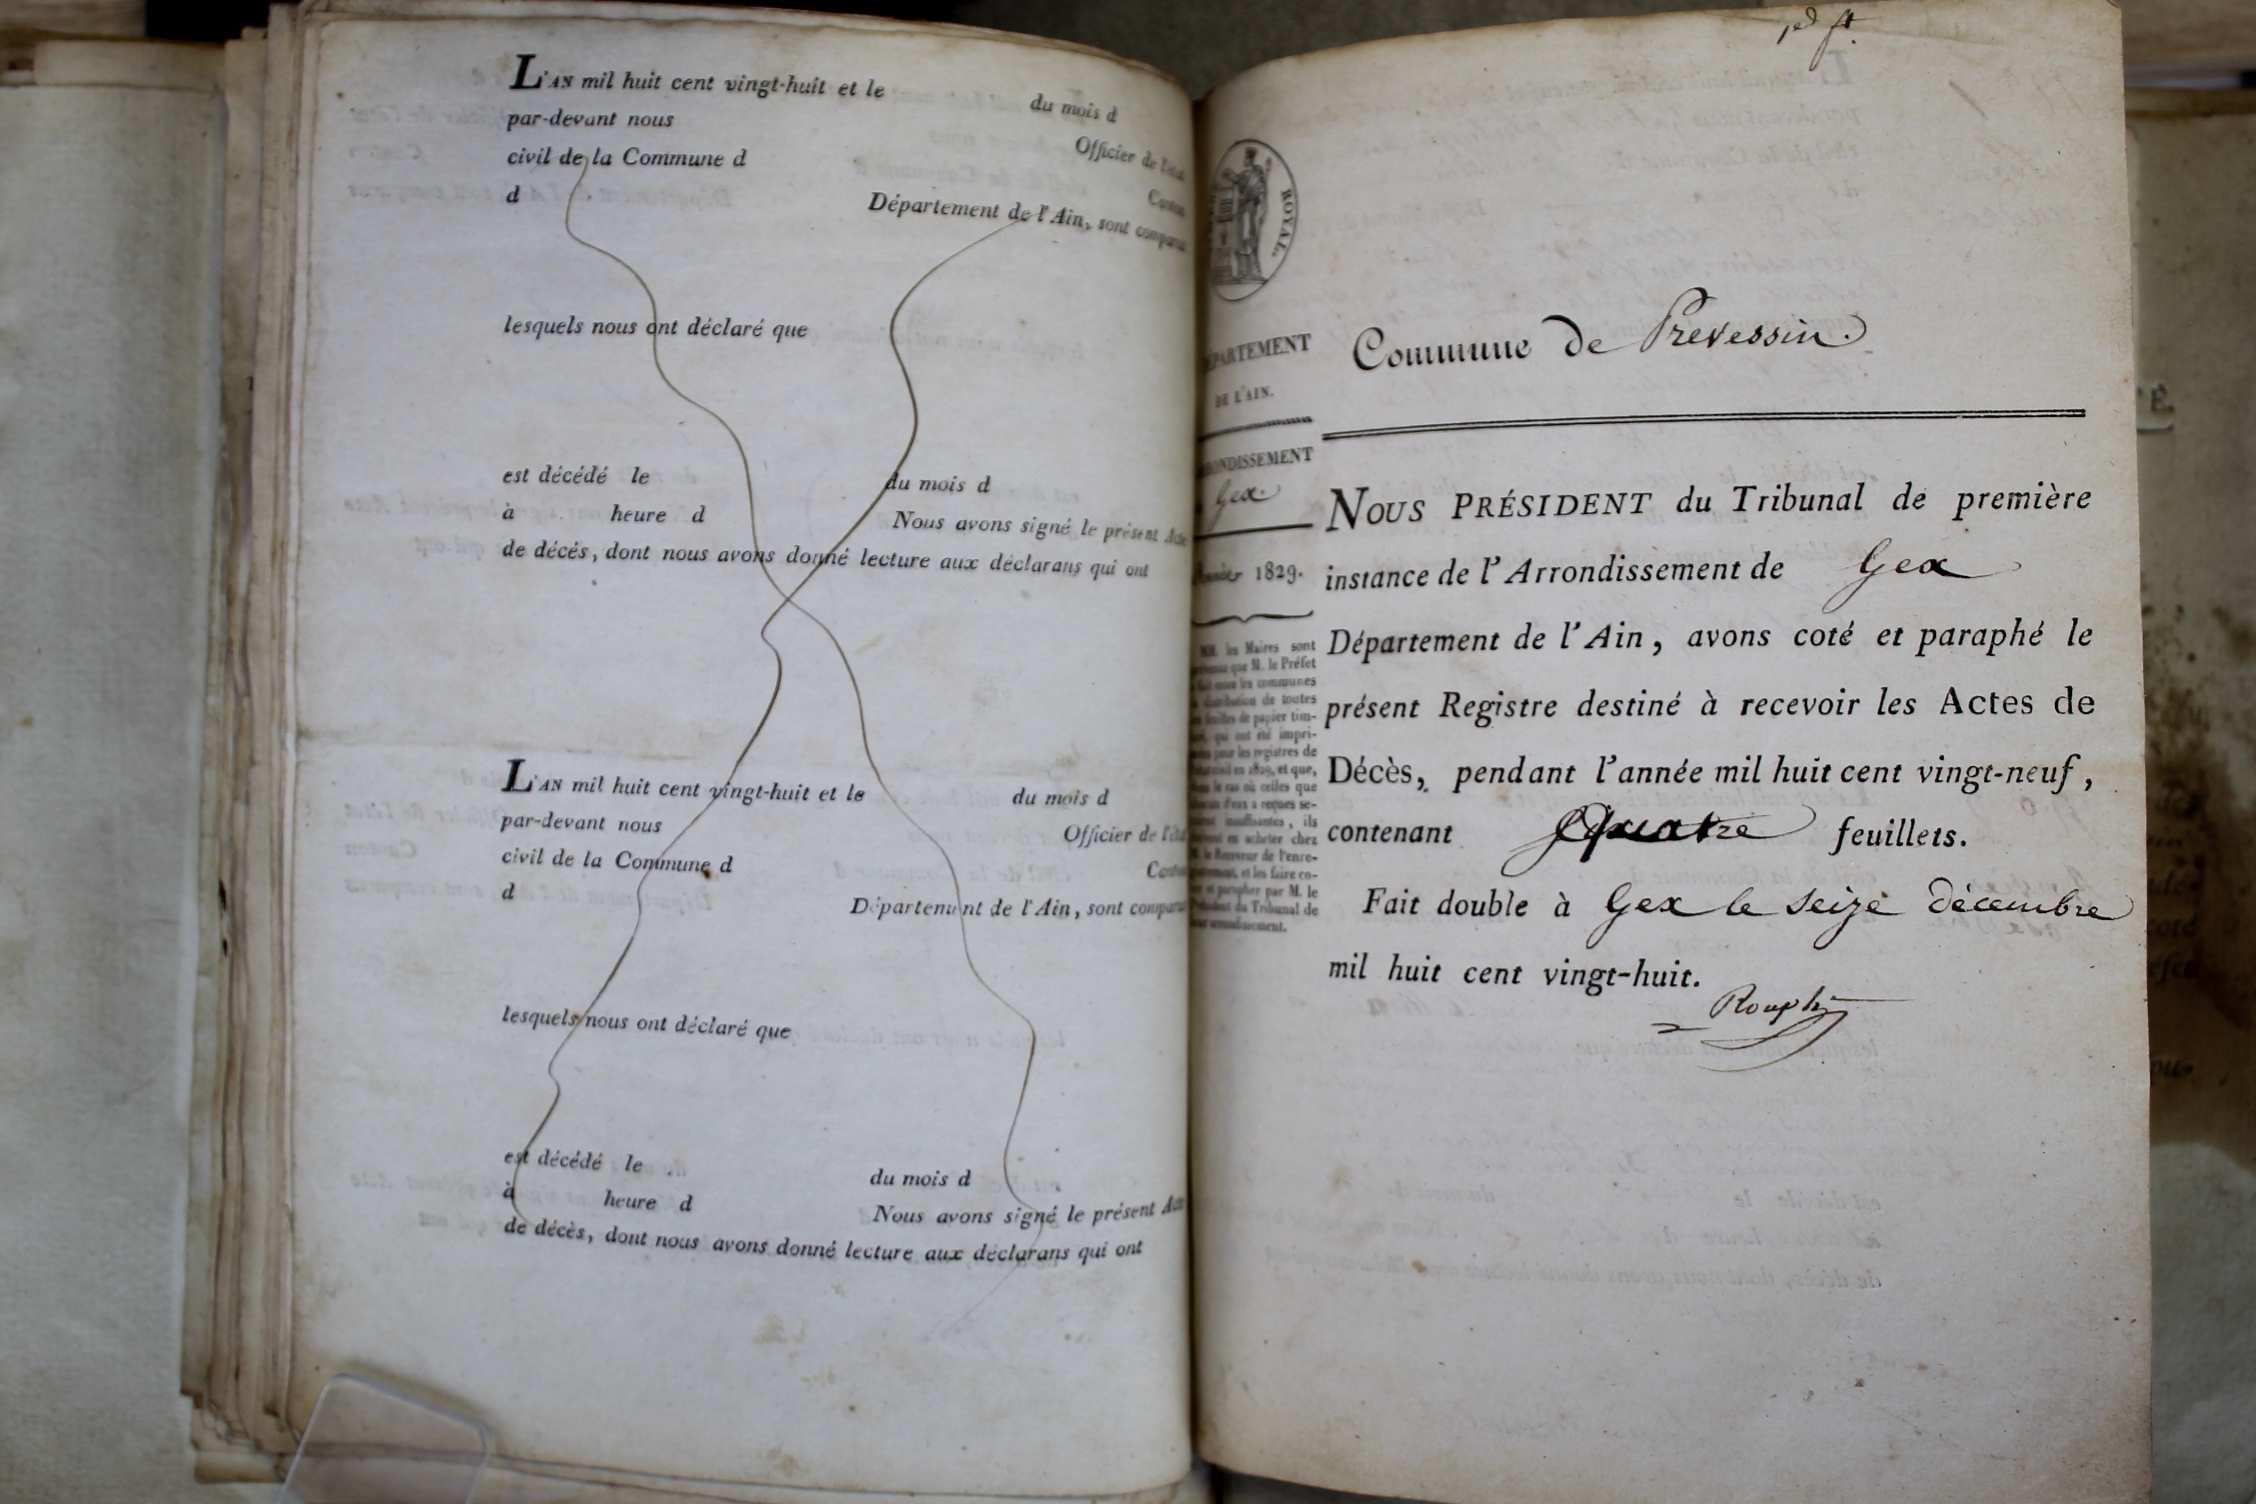 L'AN mil huit cent vingt-huit et le du mois d
par-devant nous Officier de l'état
civil de la Commune d Canton
d Département de l'Ain, sont comparus
lesquels nous ont déclaré que
est décédé le du mois d
à heure d Nous avons signé le présent Acte
de décés, dont nous avons donné lecture aux déclarans qui ont
L'AN mil huit cent vingt-huit et le du mois d
par-devant nous Officier de l'état
civil de la Commune d Canton
d Département de l'Ain, sont comparus
lesquels nous ont déclaré que
est décédé le du mois d
à heure d Nous avons signé le présent Acte
de décès, dont nous avons donné lecture aux déclarans qui ont
ROYAL.
DÉPARTEMENT
DE L'AIN.
ARRONDISSEMENT
Gex.
1829.
MM. les Maires sont
que M. le Préfet
les communes
distribution de toutes
feuilles de papier tim-
qui ont été impri-
pour les registres de
en 1829, et que,
le cas où celles que
d'eux a reçues se-
insuffisantes, ils
en acheter chez
le Receveur de l'enre-
et les faire co-
et parapher par M. le
du Tribunal de
Commune de Prevessin.
NOUS PRÉSIDENT du Tribunal de première
instance de l'Arrondissement de Gex
Département de l'Ain, avons coté et paraphé le
présent Registre destiné à recevoir les Actes de
Décès, pendant l'année mil huit cent vingt-neuf,
contenant quatre feuillets.
Fait double à Gex le seize décembre
mil huit cent vingt-huit.